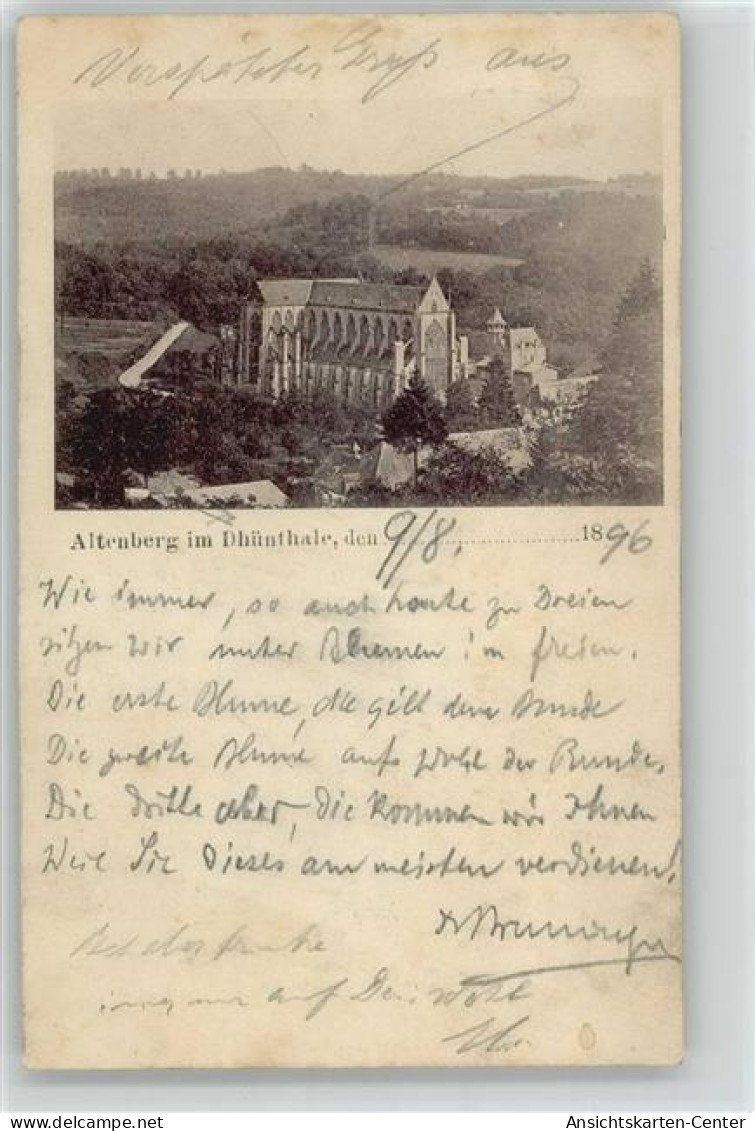 Verspäteter Gruß aus
Altenberg im Dhünthale, den 9/8. 1896
Wie immer, so auch heute zu Dreien
sitzen wir unter Blumen im freien.
Die erste Blume, die gilt dem Bunde
Die zweite Blume aufs Wohl der Runde.
Die dritte aber, die kommen wir Ihnen
Weil Sie Dieses am meisten verdienen!
auf Dein Wohl
Ansichtskarten-Center